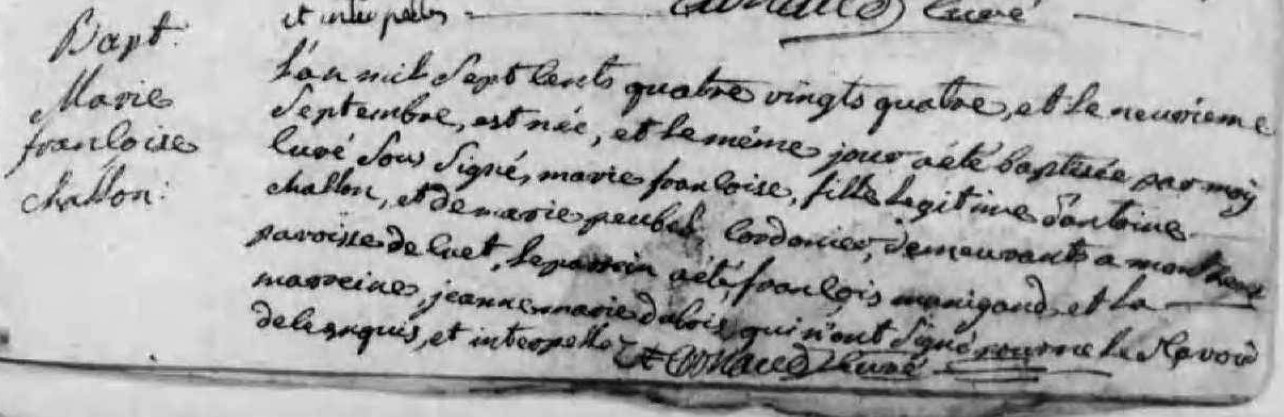 et interpellés curé
Bapt.
Marie
françoise
chatton.
L'an mil sept cents quatre vingts quatre, et le neuvieme
septembre, est née, et le même jour a été baptisée par moy
curé sous signé, marie françoise, fille legitime d'antoine
chatton, et de marie cordonier, demeurants a
paroisse de le parrin a été, françois manigand, et la
marreine, jeanne marie dubois qui n'ont signé pour ne le sçavoir
de ce requis, et interpellés curé